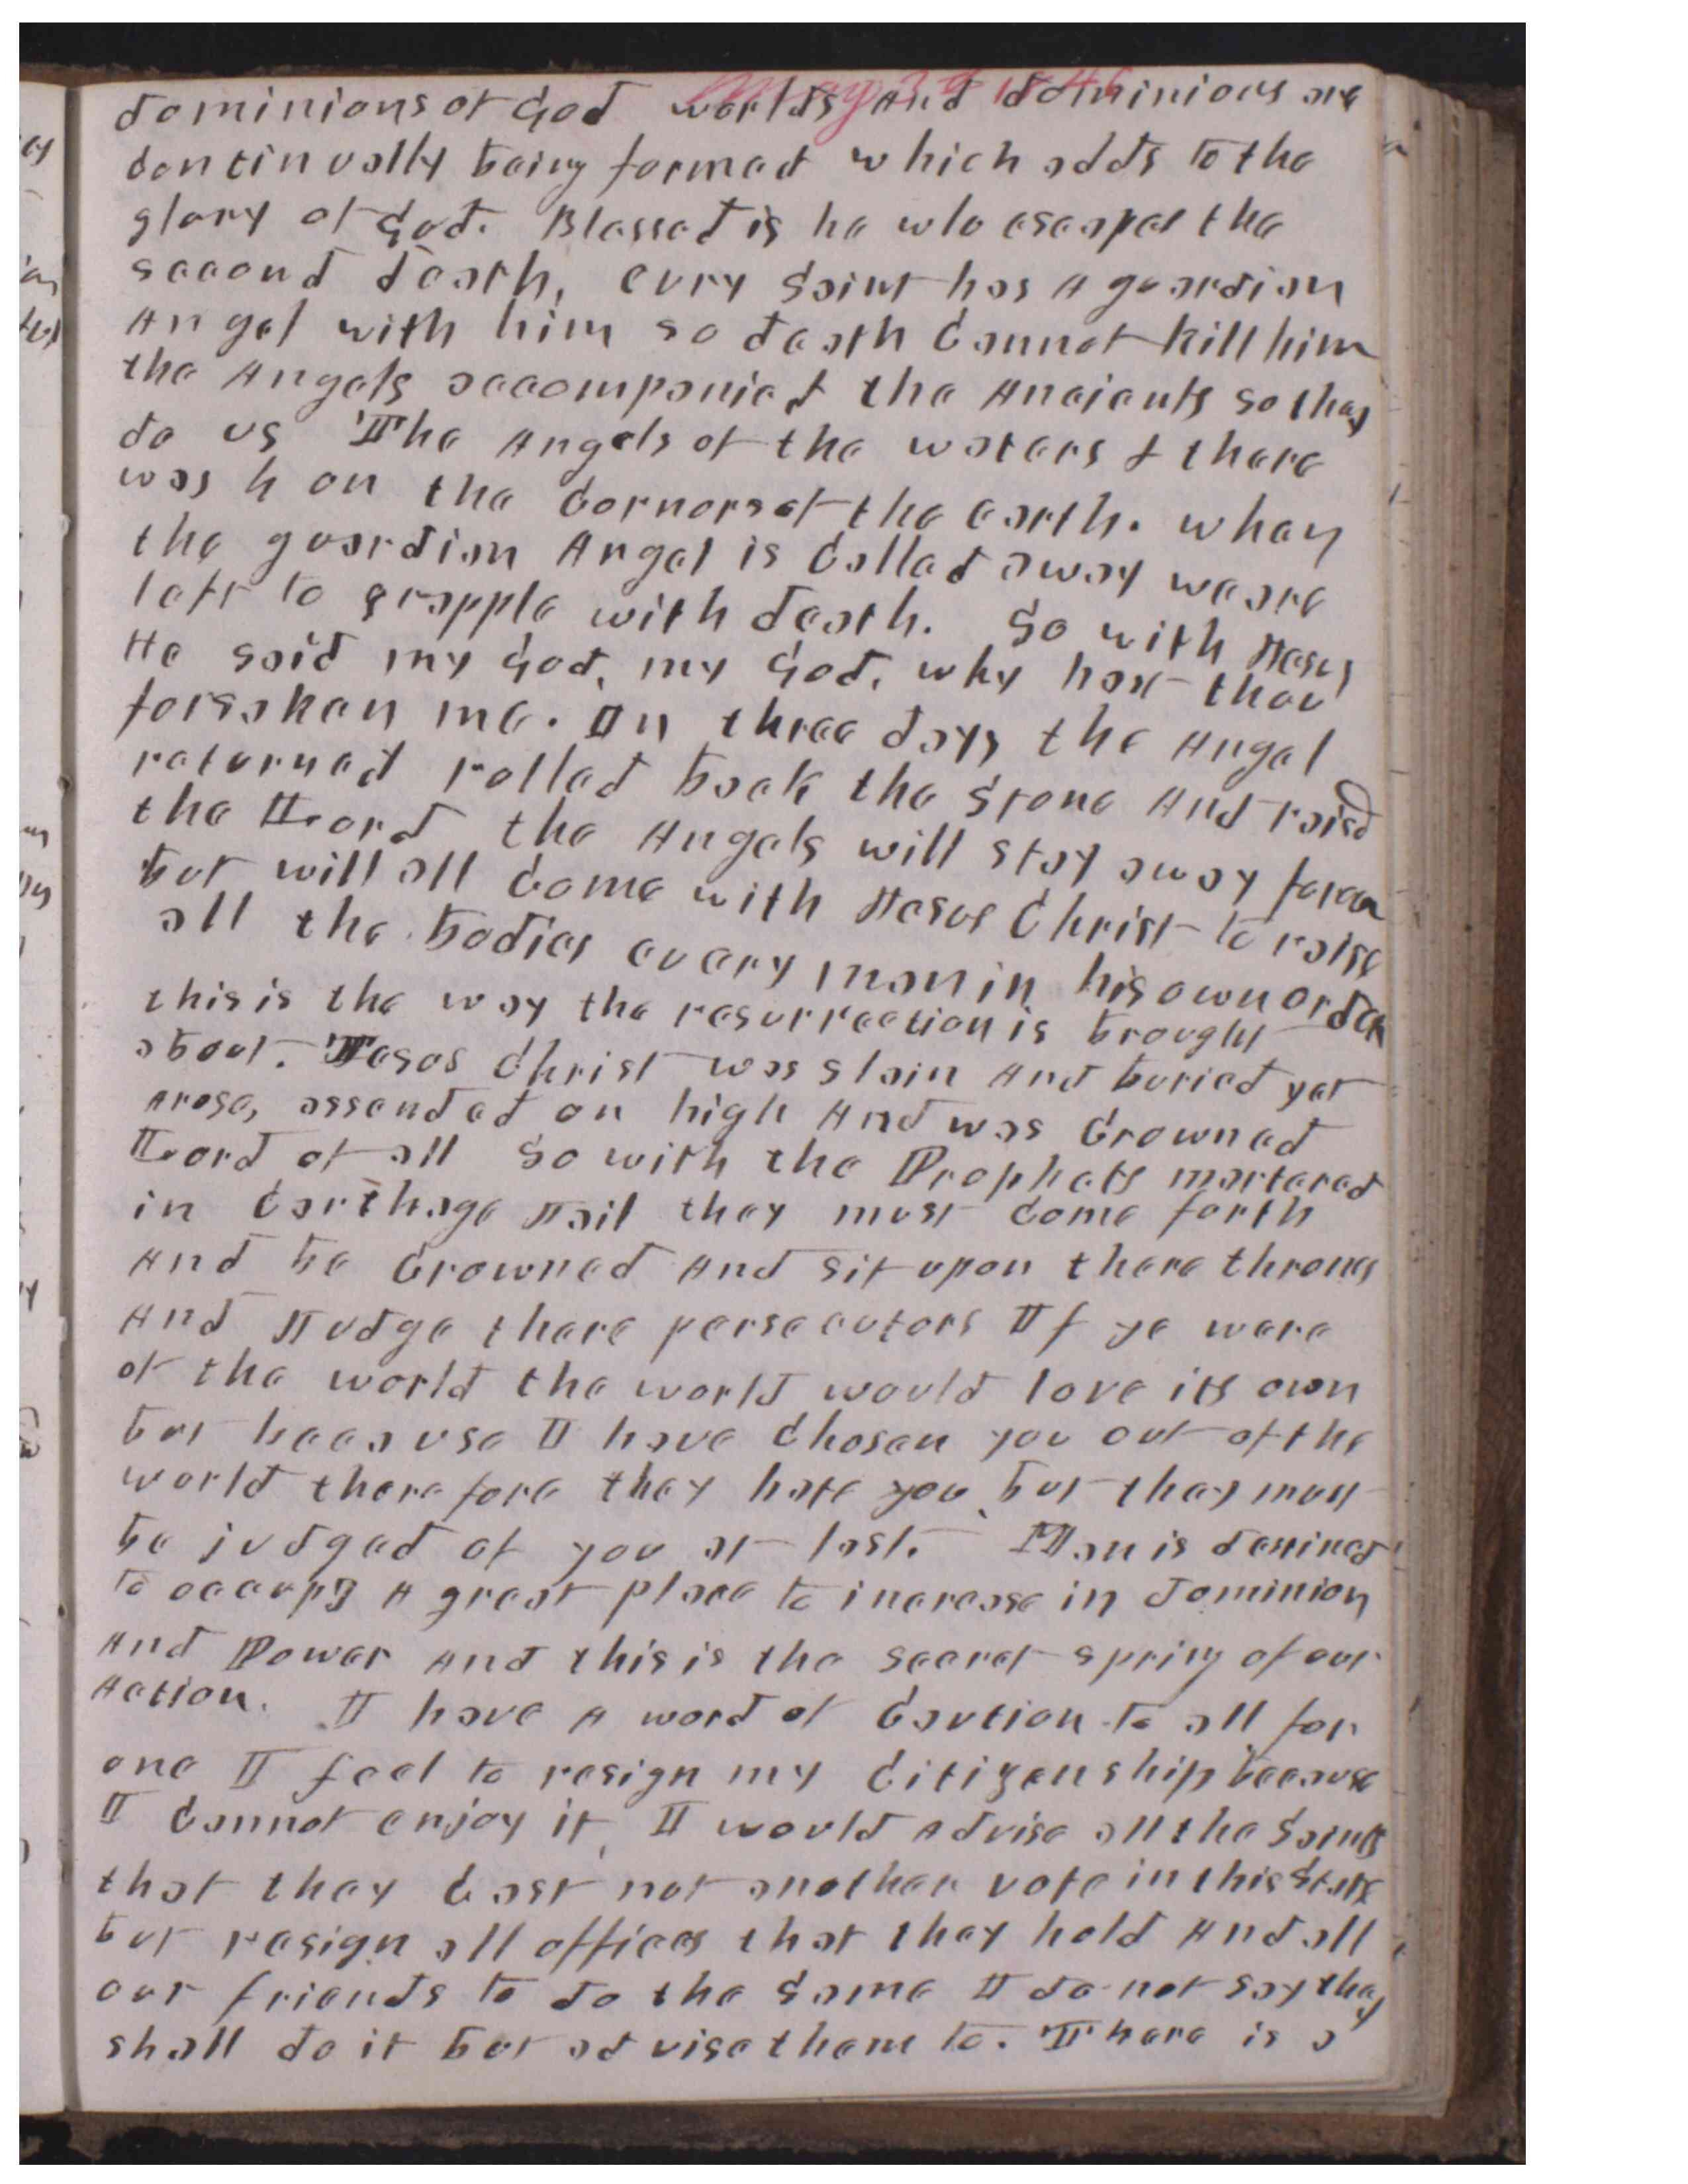 May 3d 1846
dominions of God worlds And dominions are
continually being formed which adds to the
glory of God. Blessed is he who escapes the
second death, evry Saint has A guardian
Angel with him so death Cannot kill him
the Angels accompanied the Anciants so they
do us The Angels of the waters & there
was 4 on the Cornors of the earth. when
the guardian Angel is Called away we are
left to grapple with death. So with Jesus
He said my God, my God, why hast thou
forsaken me. In three days the Angel
returned rolled back the Stone And raised
the Lord the Angels will stay away
but will all Come with Jesus Christ to raise
all the bodies every man in his own order
this is the way the resurrection is brought
about. Jesus Christ was slain And buried yet
Arose, assended on high And was Crowned
Lord of all So with the Prophets martered
in Carthage Jail they must Come forth
And be Crowned And sit upon there thrones
And Judge there persecutors If ye were
of the world the world would love its own
but because I have Chosen you out of the
world therefore they hate you but they must
be judged of you at last. Man is destined
to occupy A great place to increase in dominion
And Power And this is the secret spring of our
Action. I have A word of Caution to all for
one I feel to resign my Citizenship because
I Cannot enjoy it, I would Advise all the Saints
that they Cast not another vote in this State
but resign all offices that they hold And all
our friends to do the Same I do not say they
shall do it but advise them to. There is a